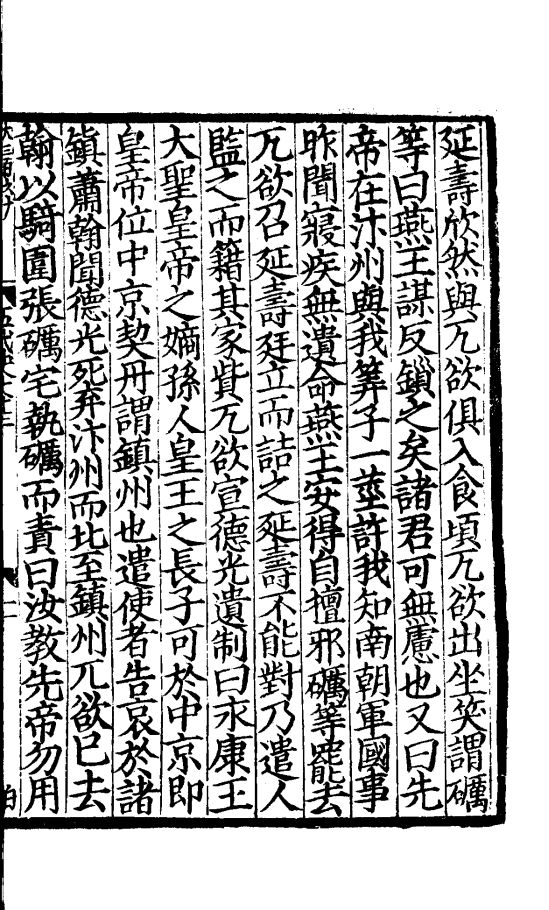 延壽欣然與兀欲俱入食頃兀欲出坐笑謂礪
等曰燕王謀反鏁之矣諸君可無慮也又曰先
帝在汴州與我筭子一莖許我知南朝軍國事
昨聞寢疾無遺命燕王安得自擅邪礪等罷去
兀欲召延壽廷立而詰之延壽不能對乃遣人
監之而籍其家貲兀欲宣德光遺制曰永康王
大聖皇帝之嫡孫人皇王之長子可於中京即
皇帝位中京契丹謂鎮州也遣使者告哀於諸
鎮蕭翰聞德光死弃汴州而北至鎮州兀欲已去
翰以騎圍張礪宅執礪而責曰汝教先帝勿用